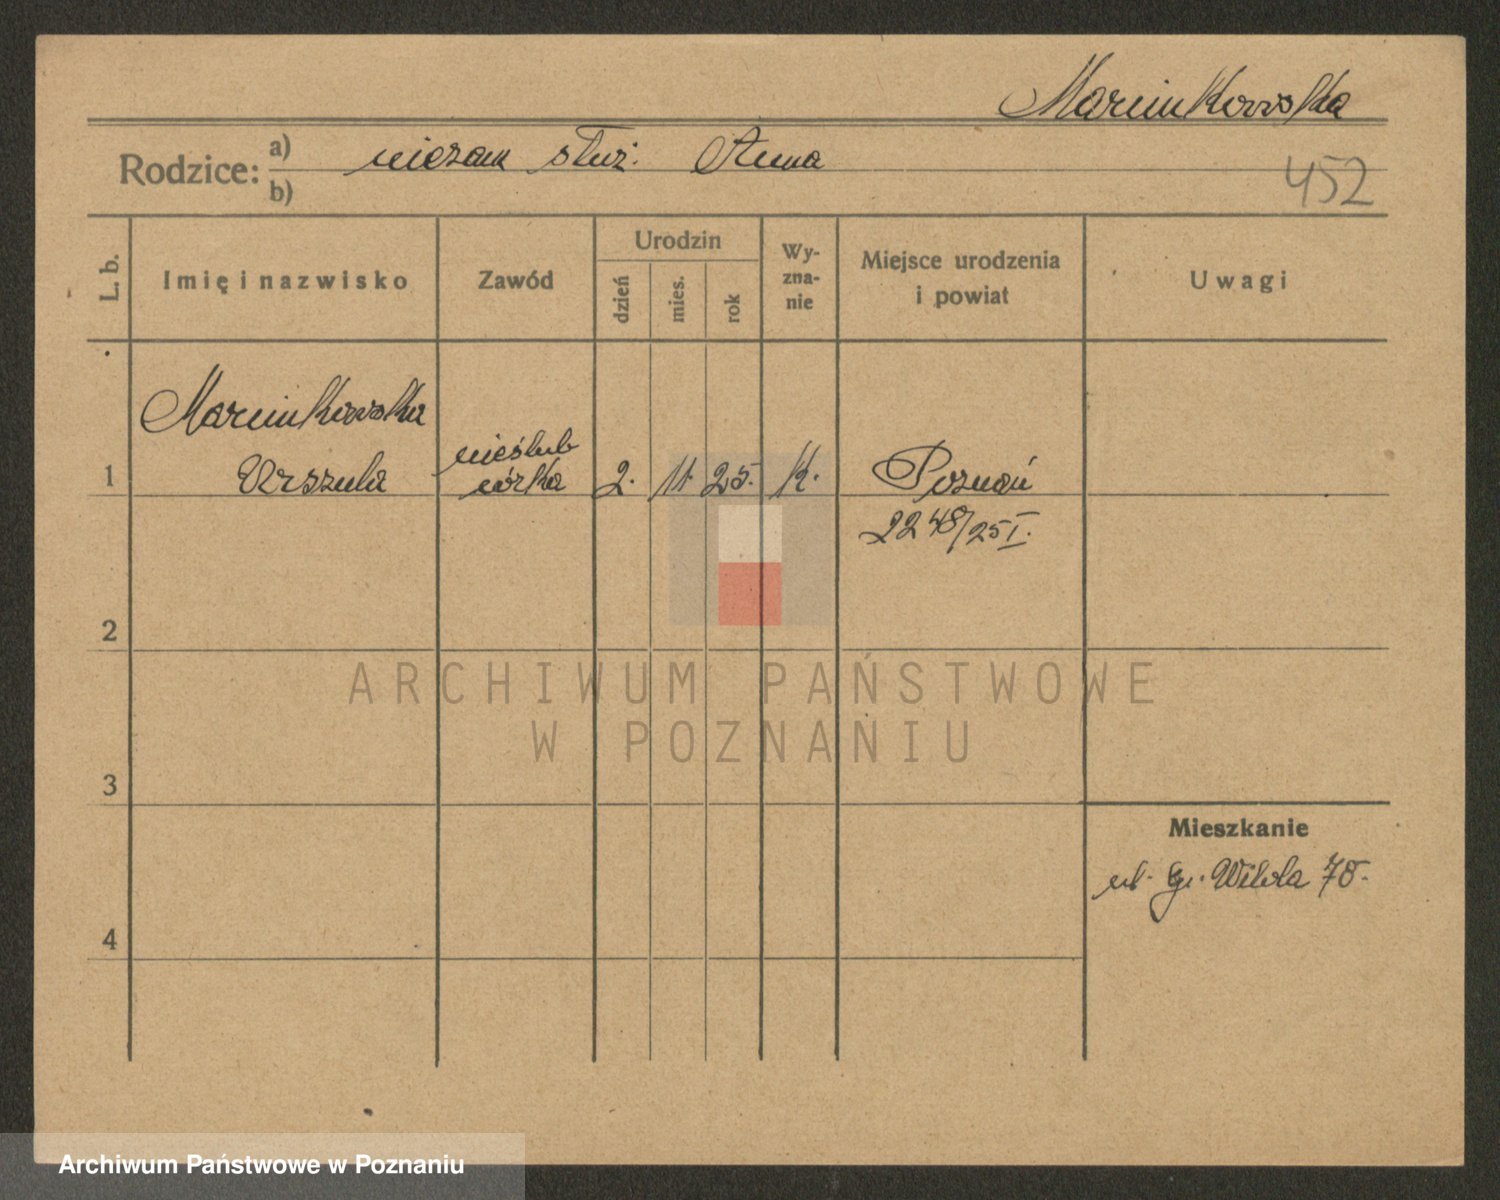 Marcinkowska
Rodzice: a) niezam służ. Anna
b)
452
L. b.
Imię i nazwisko
Zawód
Urodzin
dzień
mies.
rok
Wy-
zna-
nie
Miejsce urodzenia
i powiat
Uwagi
Marcinkowska
1 Urszula
nieślub
córka
2. 11. 25. K.
Poznań
2248/25 I.
2
3
4
Mieszkanie
ul. Wilda 78.
ARCHIWUM PAŃSTWOWE
W POZNANIU
Archiwum Państwowe w Poznaniu